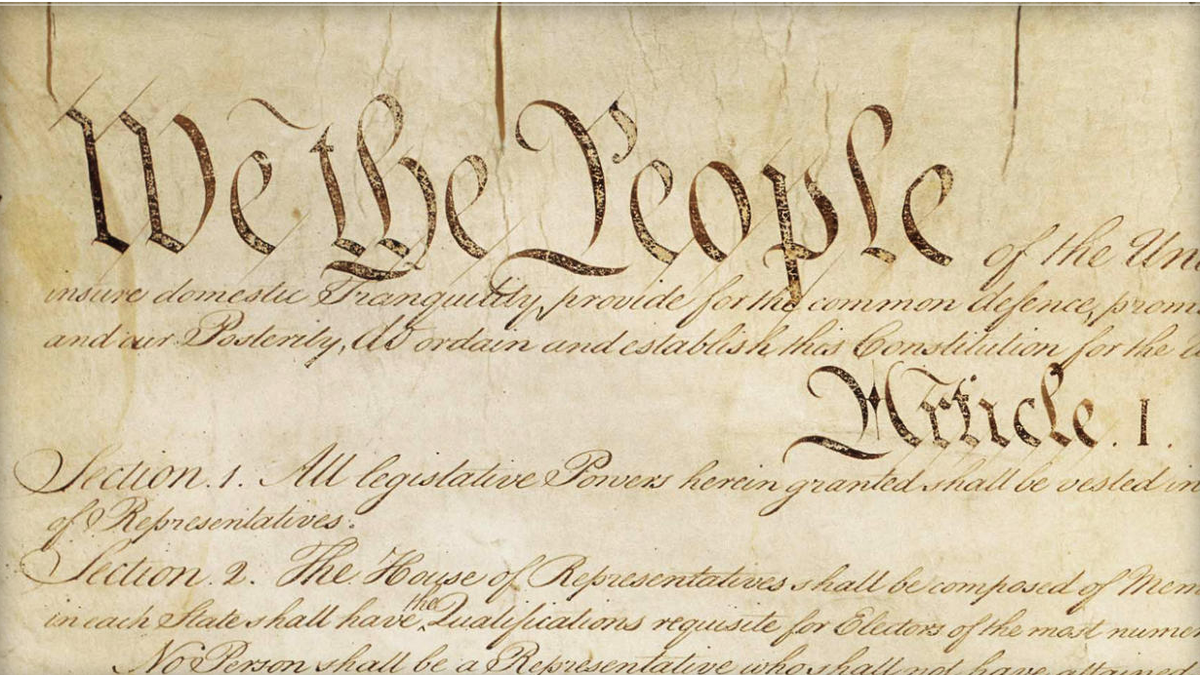 We the People of the Uni
insure domestic Tranquility, provide for the common defence, prom
and our Posterity, do ordain and establish this Constitution for the
Article. I.
Section. 1. All legislative Powers herein granted shall be vested in
of Representatives.
Section. 2. The House of Representatives shall be composed of Mem
in each State shall have the Qualifications requisite for Electors of the most numer
No Person shall be a Representative who shall not have attained